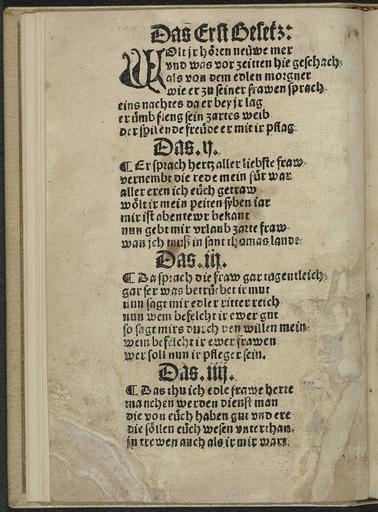 Das Erst Gesetz:
WOlt jr hören neüwe mer
vnd was vor zeitten hie geschach:
als von dem edlen morgner
wie er zu seiner frawen sprach
eins nachtes da er bey jr lag
er vmb fieng sein zartes weib
der spilende freüde er mit ir pflag
Das .ij.
¶ Er sprach hertz aller liebste fraw
vernembt die rede mein für war
aller eren ich eüch getraw
wölt ir mein peiten syben iar
mir ist abentewr bekant
nun gebt mir vrlaub zarte fraw
wan jch muß in sant thomas landt
Das .iij.
¶ Da sprach die fraw gar tugentleich
gar ser was betrübet ir mut
nun sagt mir edler ritter reich
nun wem befelcht ir ewer gut
so sagt mirs durch den willen mein
wem befelcht ir ewer frawen
wer soll nun ir pfleger sein.
Das .iiij.
¶ Das thu ich edle frawe herre
manchen werden dienst man
die von eüch haben gut vnd ere
die söllen eüch wesen vnterthan
in trewen auch als ir mir wart